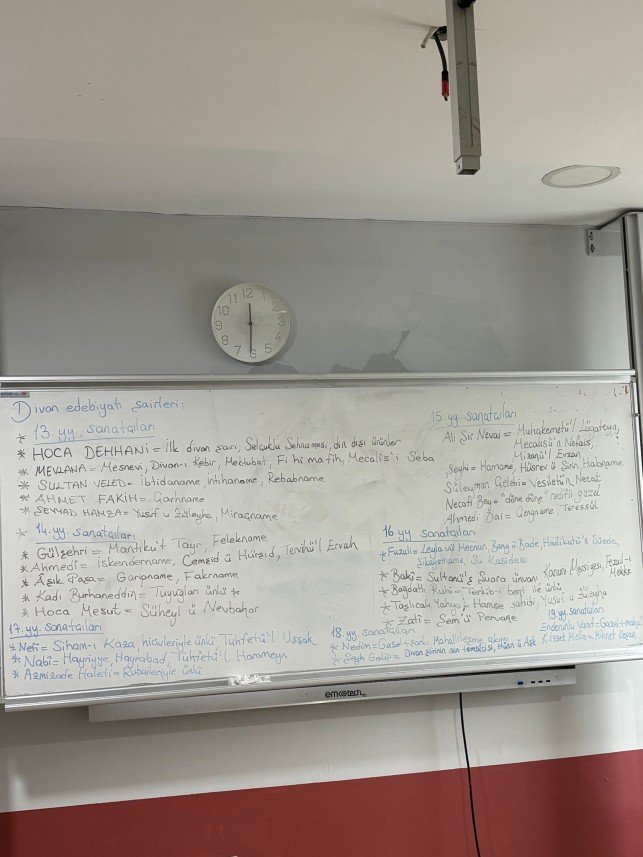 12
1
2
3
4
5
6
7
8
9
10
11
Divan edebiyatı şairleri:
* 13. yy. sanatçıları
* HOCA DEHHANİ = ilk divan şairi, Selçuklu Şehnamesi, din dışı ürünler
* MEVLANA = Mesnevi, Divan-ı Kebir, Mektubat, Fi hi ma fih, Mecalis'i Seba
* SULTAN VELED = İbtidaname, intihaname, Rebabname
* AHMET FAKIH = Çarhname
* ŞEYYAD HAMZA = Yusuf u Züleyha, Miraçname
* 14. yy. sanatçıları
* Gülşehri = Mantıku't Tayr, Felekname
* Ahmedi = İskendername, Cemşid ü Hurşid, Tervihü'l Ervah
* Aşık Paşa = Garipname, Fakrname
* Kadı Burhaneddin = Tuyuğları ünlü *
* Hoca Mesut = Süheyl ü Nevbahar
17. yy. sanatçıları
* Nefi = Siham-ı Kaza, hicivleriyle ünlü Tuhfetü'l Uşşak
* Nabi = Hayriyye, Hayrabad, Tuhfetü'l Harameyn
* Azmizade Haleti = Rubaileriyle ünlü
15 yy sanatçıları
Ali Şir Nevai = Muhakemetü'l Lügateyn,
Mecalisü'n Nefais,
Mizanü'l Evzan
Şeyhi = Harname, Hüsrev ü Şirin, Habname
Süleyman Çelebi = Vesiletün Necat
Necati Bey = "döne döne" redifli gazel
Ahmedi Dai = Çengname, Teressül
16 yy sanatçıları
* Fuzuli = Leyla vü Mecnun, Beng ü Bade, Hadikatü's Süeda,
Şikayetname, Su Kasidesi
* Baki = Sultanü's Şuara ünvanı, Kanuni Mersiyesi, Fezail-i
Mekke
* Bağdatlı Ruhi = Terkib-i bent ile ünlü
* Taşlıcalı Yahya = Hamse sahibi, Yusuf u Züleyha
* Zati = Şem'ü Pervane
18. yy sanatçıları
* Nedim = Gazel-şarkı Mahallileşme akımı
* Şeyh Galip = Divan şiirinin son temsilcisi, Hüsn ü Aşk
19. yy sanatçıları
Enderunlu Vasıf = Gazel
K. İzzet Molla = Mihnet Keşan
emkotech